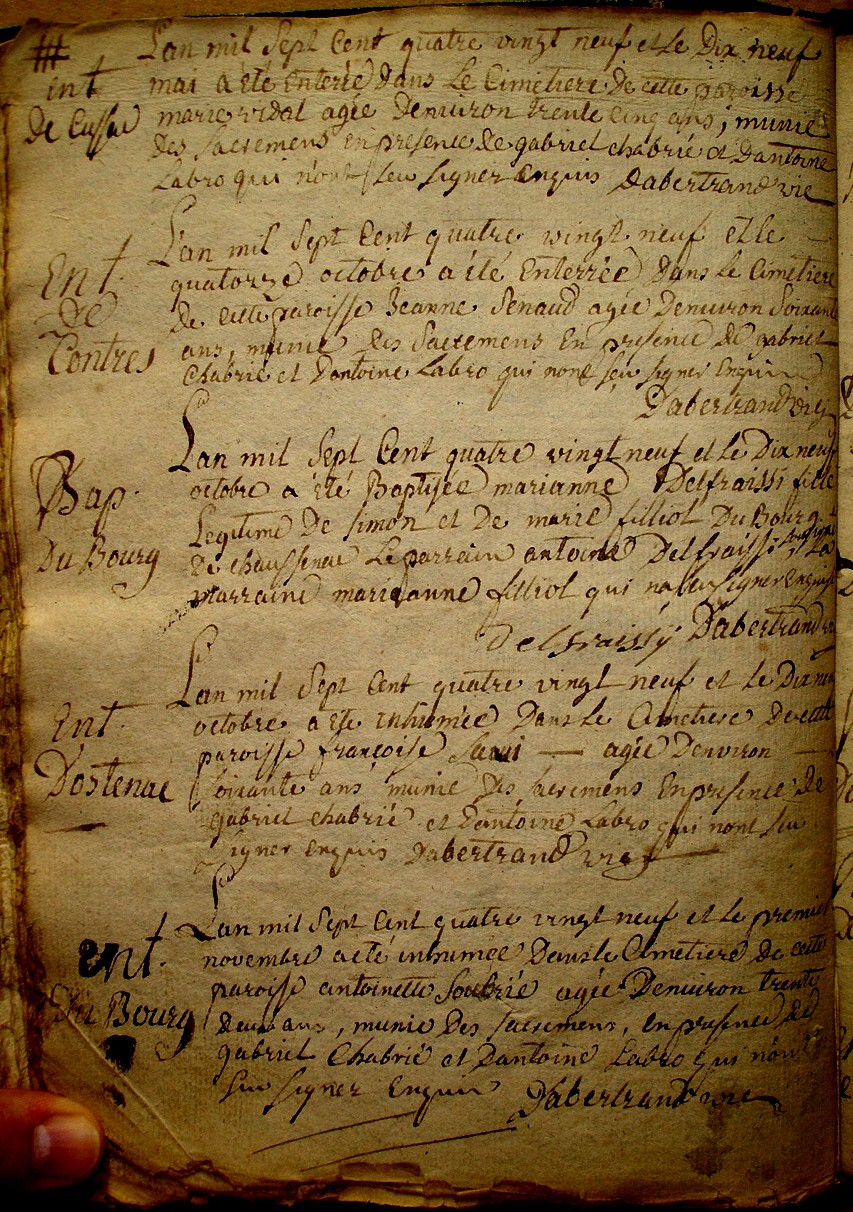 Ent
De Cussac
L'an mil Sept Cent quatre vingt neuf et le Dix neuf
mai a été Enterée Dans Le Cimetiere De cette paroisse
marie vidal agée Denviron trente cinq ans, munie
Des Sacremens en presence De gabriel chabrié et Dantoine
Labro qui n'ont Seu signer Enquis Dabertrand vic
Ent.
De
Contres
L'an mil Sept Cent quatre vingt neuf et le
quatorze octobre a été Enterrée Dans Le Cimetiere
De cette paroisse Jeanne Senaud agée Denviron Soixante
ans, munie Des Sacremens En presence De gabriel
Chabrié et Dantoine Labro qui nont Seu signer Enquis
Dabertrand vic
Bap.
Du Bourg
L'an mil Sept Cent quatre vingt neuf et le Dix neuf
octobre a été Baptisée marianne Delfraissi fille
Legitime De simon et De marie filliol Du Bourg
De chaussenac Le parrain antoine Delfraissi La
marraine marieanne filliol qui na seu signer Enquise
Delfraissÿ Dabertrand vic
Ent.
Dostenac
L'an mil Sept Cent quatre vingt neuf et le Dix neuf
octobre a été inhumée Dans Le Cimetiere De cette
paroisse françoise agée Denviron
Soixante ans munie Des sacremens En presence De
gabriel chabrié et Dantoine Labro qui nont Seu
signer enquis Dabertrand vic
Ent.
Du Bourg
L'an mil Sept Cent quatre vingt neuf et le premier
novembre a eté inhumée Dans le Cimetiere De cette
paroisse antoinette Soubrié agée Denviron trente
Deux ans, munie Des sacremens, en presence De
gabriel Chabrié et Dantoine Labro qui n'ont
Seu signer Enquis Dabertrand vic